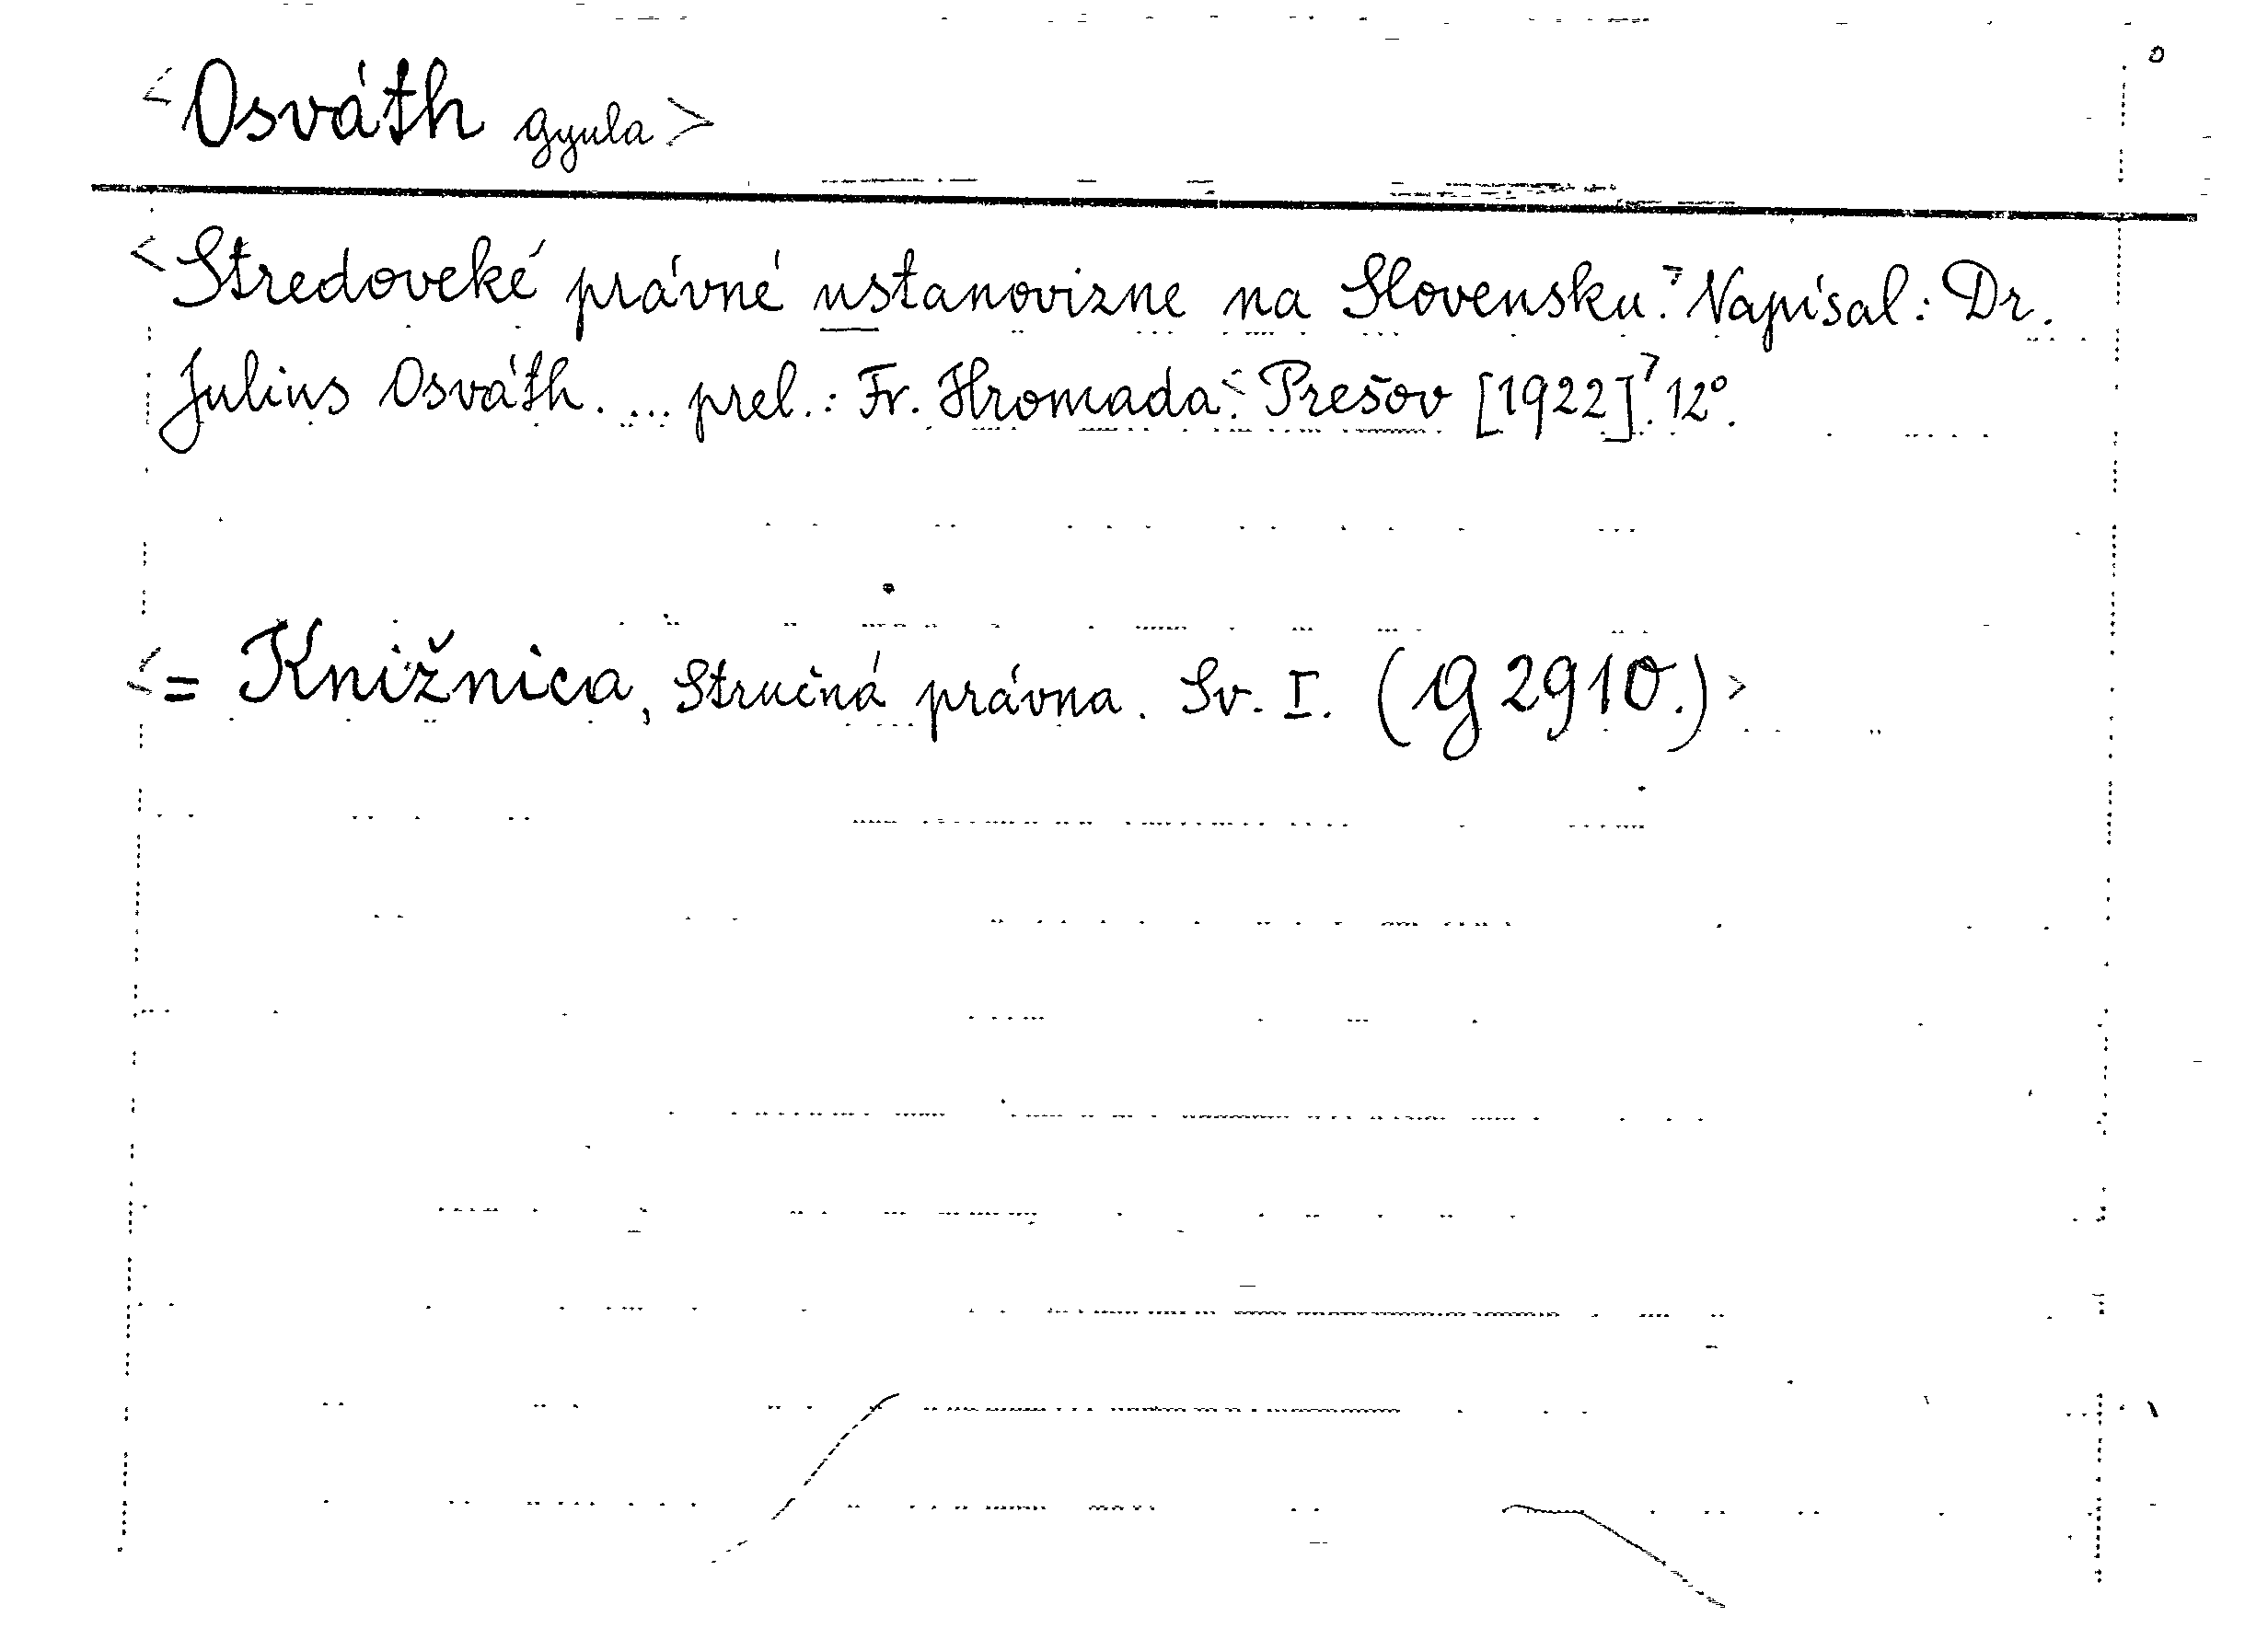 <Osváth Gyula>
<Stredoveké právné ustanovizne na Slovensku.> Napísal: Dr.
Julius Osváth. ... prel.: Fr. Hromada.< Prešov [1922].> 12°.
<= Knižnica, Stručná právna. Sv. I. (G 2910.)>